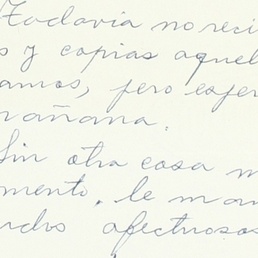 Todavia no reci
s y copias aquel
amos, pero esper
mañana.
Sin otra cosa m
mento, le man
rdos afectuosos